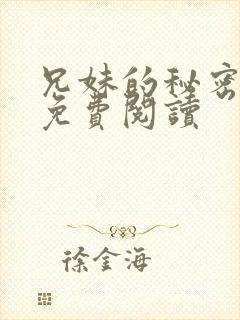 兄妹的秘密
免費閱讀
徐金海